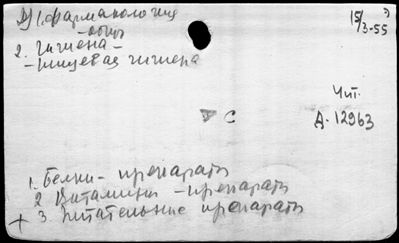 1. Фармакология
- общ.
15/3-55
2. Гигиена -
- пищевая гигиена
Чит.
C
А-12963
1. Белки - препараты
2 Витамины - препараты
+ 3. Питательные препараты